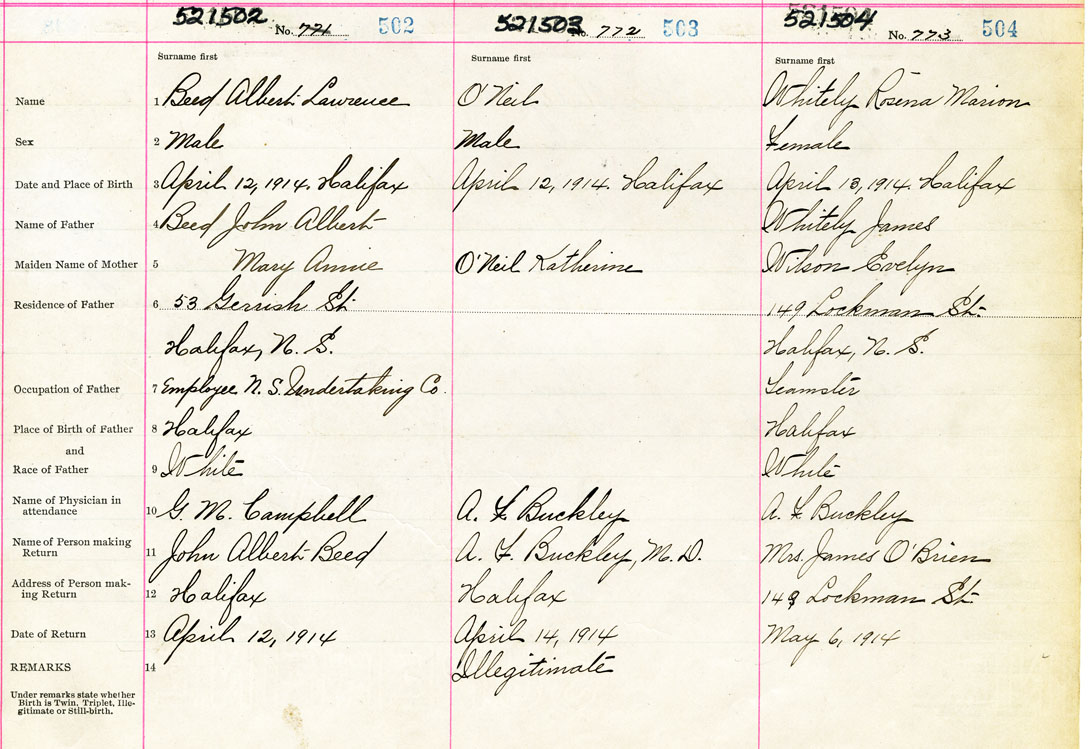 521502 No. 771 502 521503 No. 772 503 521504 No. 773 504
Surname first Surname first Surname first
Name 1 Beed Albert Lawrence O'Neil Whitely Rosena Marion
Sex 2 Male Male Female
Date and Place of Birth 3 April 12, 1914, Halifax April 12, 1914. Halifax April 13, 1914. Halifax
Name of Father 4 Beed John Albert Whitely James
Maiden Name of Mother 5 Mary Annie O'Neil Katherine Wilson Evelyn
Residence of Father 6 53 Gerrish St. 149 Lockman St.
Halifax, N. S. Halifax, N. S.
Occupation of Father 7 Employee N. S. Undertaking Co. Teamster
Place of Birth of Father 8 Halifax Halifax
and
Race of Father 9 White White
Name of Physician in
attendance 10 G. M. Campbell A. F. Buckley A. F. Buckley
Name of Person making
Return 11 John Albert Beed A. F. Buckley, M. D. Mrs. James O'Brien
Address of Person mak-
ing Return 12 Halifax Halifax 149 Lockman St.
Date of Return 13 April 12, 1914 April 14, 1914 May 6, 1914
REMARKS 14 Illegitimate
Under remarks state whether
Birth is Twin, Triplet, Ille-
gitimate or Still-birth.